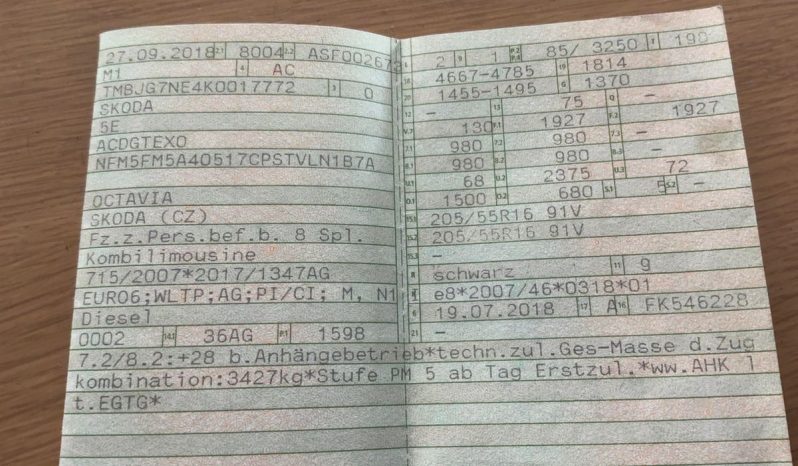 27.09.2018 2.1 8004 2.2 ASF00267
M1 4 AC
TMBJG7NE4K0017772 3 0
SKODA
5E
ACDGTEX0
NFM5FM5A40517CPSTVLN1B7A
OCTAVIA
SKODA (CZ)
Fz.z.Pers.bef.b. 8 Spl.
Kombilimousine
715/2007*2017/1347AG
EURO6;WLTP;AG;PI/CI; M, N1
Diesel
0002 14.1 36AG P.1 1598
L 2 9 1 P.2 P.4 85/ 3250 T 190
18 4667-4785 19 1814
20 1455-1495 G 1370
12 - 13 75 Q -
V.7 130 F.1 1927 F.2 1927
7.1 980 7.2 980 7.3 -
8.1 980 8.2 980 8.3 -
U.1 68 U.2 2375 U.3 72
O.1 1500 O.2 680 S.1 5 S.2 -
15.1 205/55R16 91V
15.2 205/55R16 91V
15.3 -
R schwarz 11 9
K e8*2007/46*0318*01
6 19.07.2018 17 A 16 FK546228
21 -
7.2/8.2:+28 b.Anhängebetrieb*techn.zul.Ges-Masse d.Zug
kombination:3427kg*Stufe PM 5 ab Tag Erstzul.*ww.AHK l
t.EGTG*